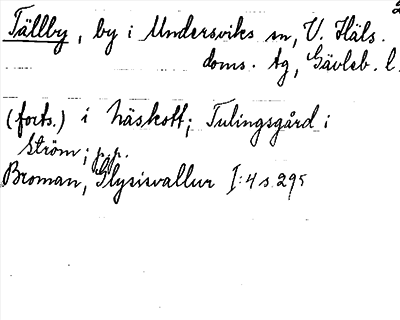 Tällby, by i Undersviks sn, V. Häls.
doms. tg, Gävleb. l.
(forts.) i häskott; Tulingsgård i
Ström;
Broman, Glysisvallur I:4 s 295